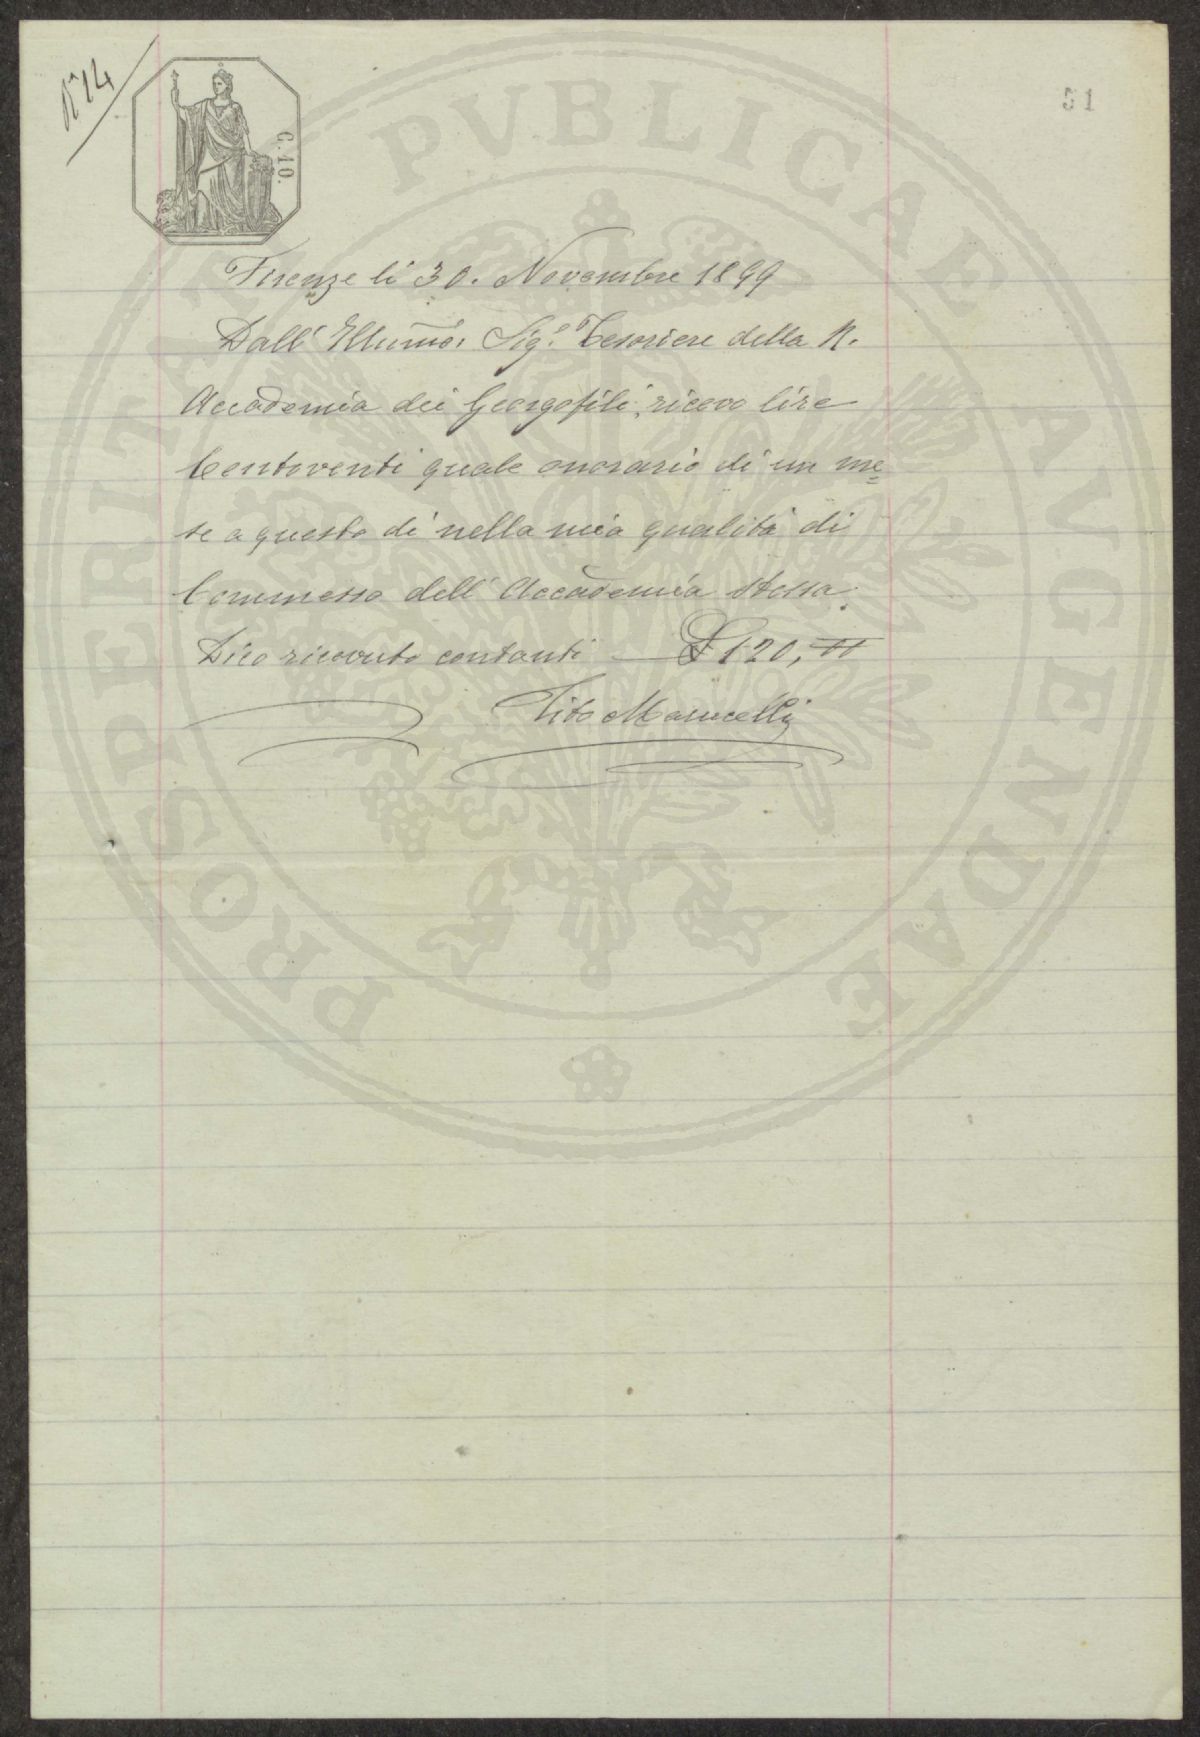 N° 14
C. 10.
51
Firenze li 30. Novembre 1899
Dall' Illumo: Sigr Tesoriere della R.
Accademia dei Georgofili, ricevo lire
Centoventi quale onorario di un me=
se a questo dì nella mia qualità di
Commesso dell' Accademia stessa.
Dico ricevuto contanti £ 120, "
Tito Marucelli
PROSPERITATI PVBLICAE AVGENDAE